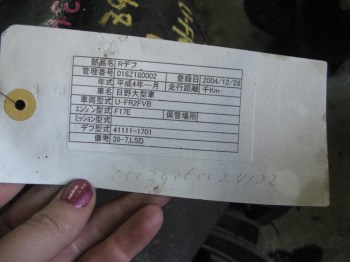 部品名 Rデフ
管理番号 016Z180002 登録日 2004/12/28
年式 平成4年--月 走行距離 千Km
車名 日野大型車
車両型式 U-FR2FVB
エンジン型式 F17E 保管場所
ミッション型式
デフ型式 41111-1701
備考 38-7,LSD